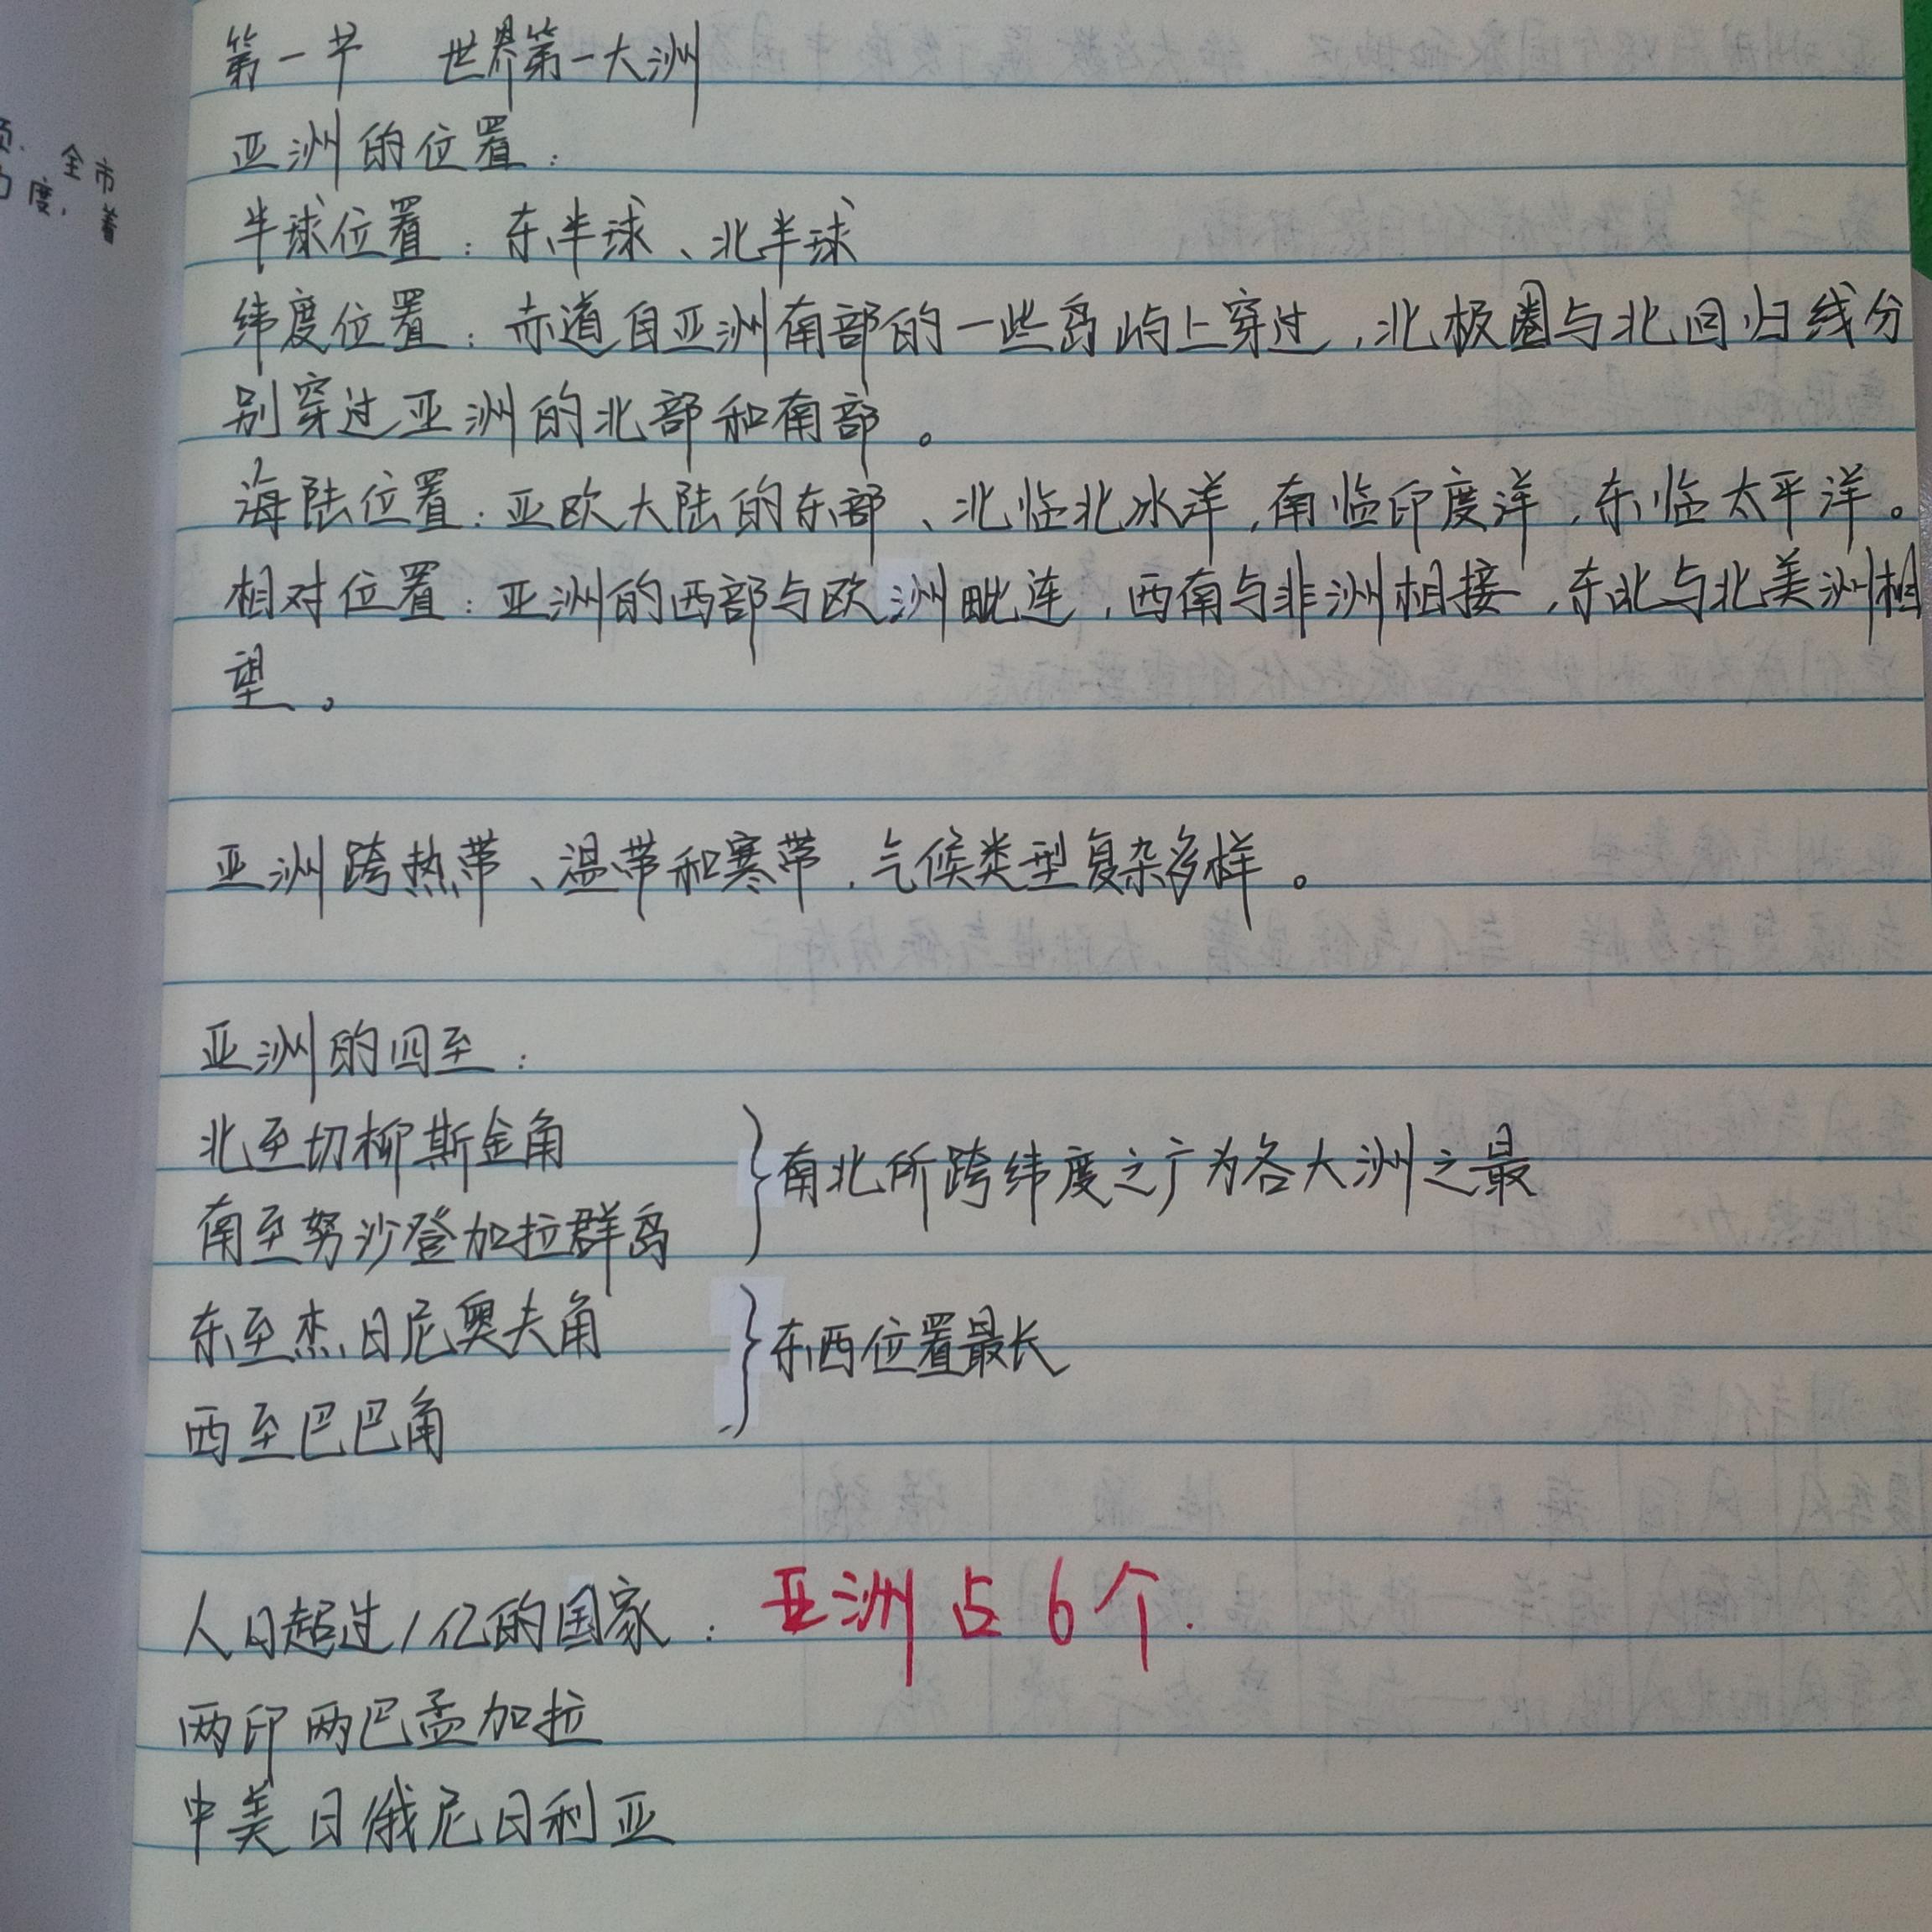 第一节 世界第一大洲
亚洲的位置：
半球位置：东半球、北半球
纬度位置：赤道自亚洲南部的一些岛屿上穿过，北极圈与北回归线分
别穿过亚洲的北部和南部。
海陆位置：亚欧大陆的东部、北临北冰洋，南临印度洋，东临太平洋。
相对位置：亚洲的西部与欧洲毗连，西南与非洲相接，东北与北美洲相
望。
亚洲跨热带、温带和寒带，气候类型复杂多样。
亚洲的四至：
北至切柳斯金角
南至努沙登加拉群岛
南北所跨纬度之广为各大洲之最
东至杰日尼奥夫角
西至巴巴角
东西位置最长
人口超过1亿的国家：亚洲占6个.
两印两巴孟加拉
中美日俄尼日利亚
全市
度，着